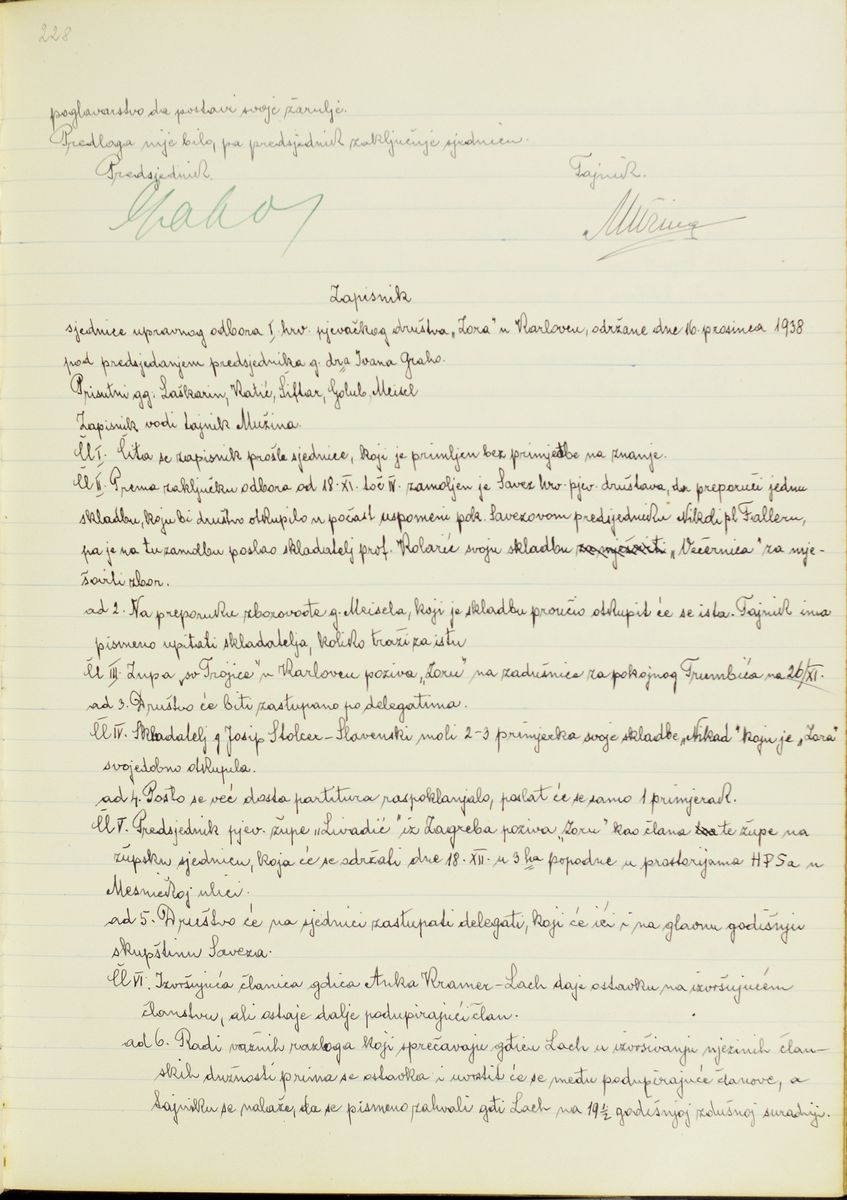 228
poglavarstvo da postavi svoje žarulje.
Predloga nije bilo, pa predsjednik zaključuje sjednicu.
Predsjednik. Tajnik.
Graho Mužina
Zapisnik
sjednice upravnog odbora I. hrv. pjevačkog društva „Zora" u Karlovcu, održane dne 16. prosinca 1938
pod predsjedanjem predsjednika g. dra Ivana Graho.
Prisutni gg. Laškarin, Katić, Šiftar, Golub, Meisel
Zapisnik vodi tajnik Mužina.
Čl I. Čita se zapisnik prošle sjednice, koji je primljen bez primjetbe na znanje.
Čl II. Prema zaključku odbora od 18. XI. toč IV. zamoljen je Savez hrv. pjev. društava, da preporuči jednu
skladbu, koju bi društvo otkupilo u počast uspomeni pok. Savezovom predsjedniku Nikoli pl Falleru,
pa je na tu zamolbu poslao skladatelj prof. Kolarić svoju skladbu za mješoviti „Večernica" za mje-
šoviti zbor.
ad 2. Na preporuku zborovođe g. Meisela, koji je skladbu proučio otkupit će se ista. Tajnik ima
pismeno upitati skladatelja, koliko traži za istu
Čl III. Župa „sv Trojice" u Karlovcu poziva „Zoru" na zadušnice za pokojnog Trumbića na 26/XI.
ad 3. Društvo će biti zastupano po delegatima.
Čl IV. Skladatelj g Josip Štolcer-Slavenski moli 2-3 primjerka svoje skladbe „Nikad" koju je „Zora"
svojedobno otkupila.
ad 4. Pošto se već dosta partitura raspoklanjalo, poslat će se samo 1 primjerak.
Čl V. Predsjednik pjev. župe „Livadić" iz Zagreba poziva „Zoru" kao člana te župe na
župsku sjednicu, koja će se održati dne 18. XII. u 3 ha popodne u prostorijama HPSa u
Mesničkoj ulici.
ad 5. Društvo će na sjednici zastupati delegati, koji će ići i na glavnu godišnju
skupštinu Saveza.
Čl VI. Izvršujuća članica gđica Anka Kramer-Lach daje ostavku na izvršujućem
članstvu, ali ostaje dalje podupirajući član.
ad 6. Radi važnih razloga koji sprečavaju gđicu Lach u izvršivanju njezinih član-
skih dužnosti prima se ostavka i uvrstit će se među podupirajuće članove, a
tajniku se nalaže, da se pismeno zahvali gđi Lach na 19 1/2 godišnjoj zdušnoj suradnji.